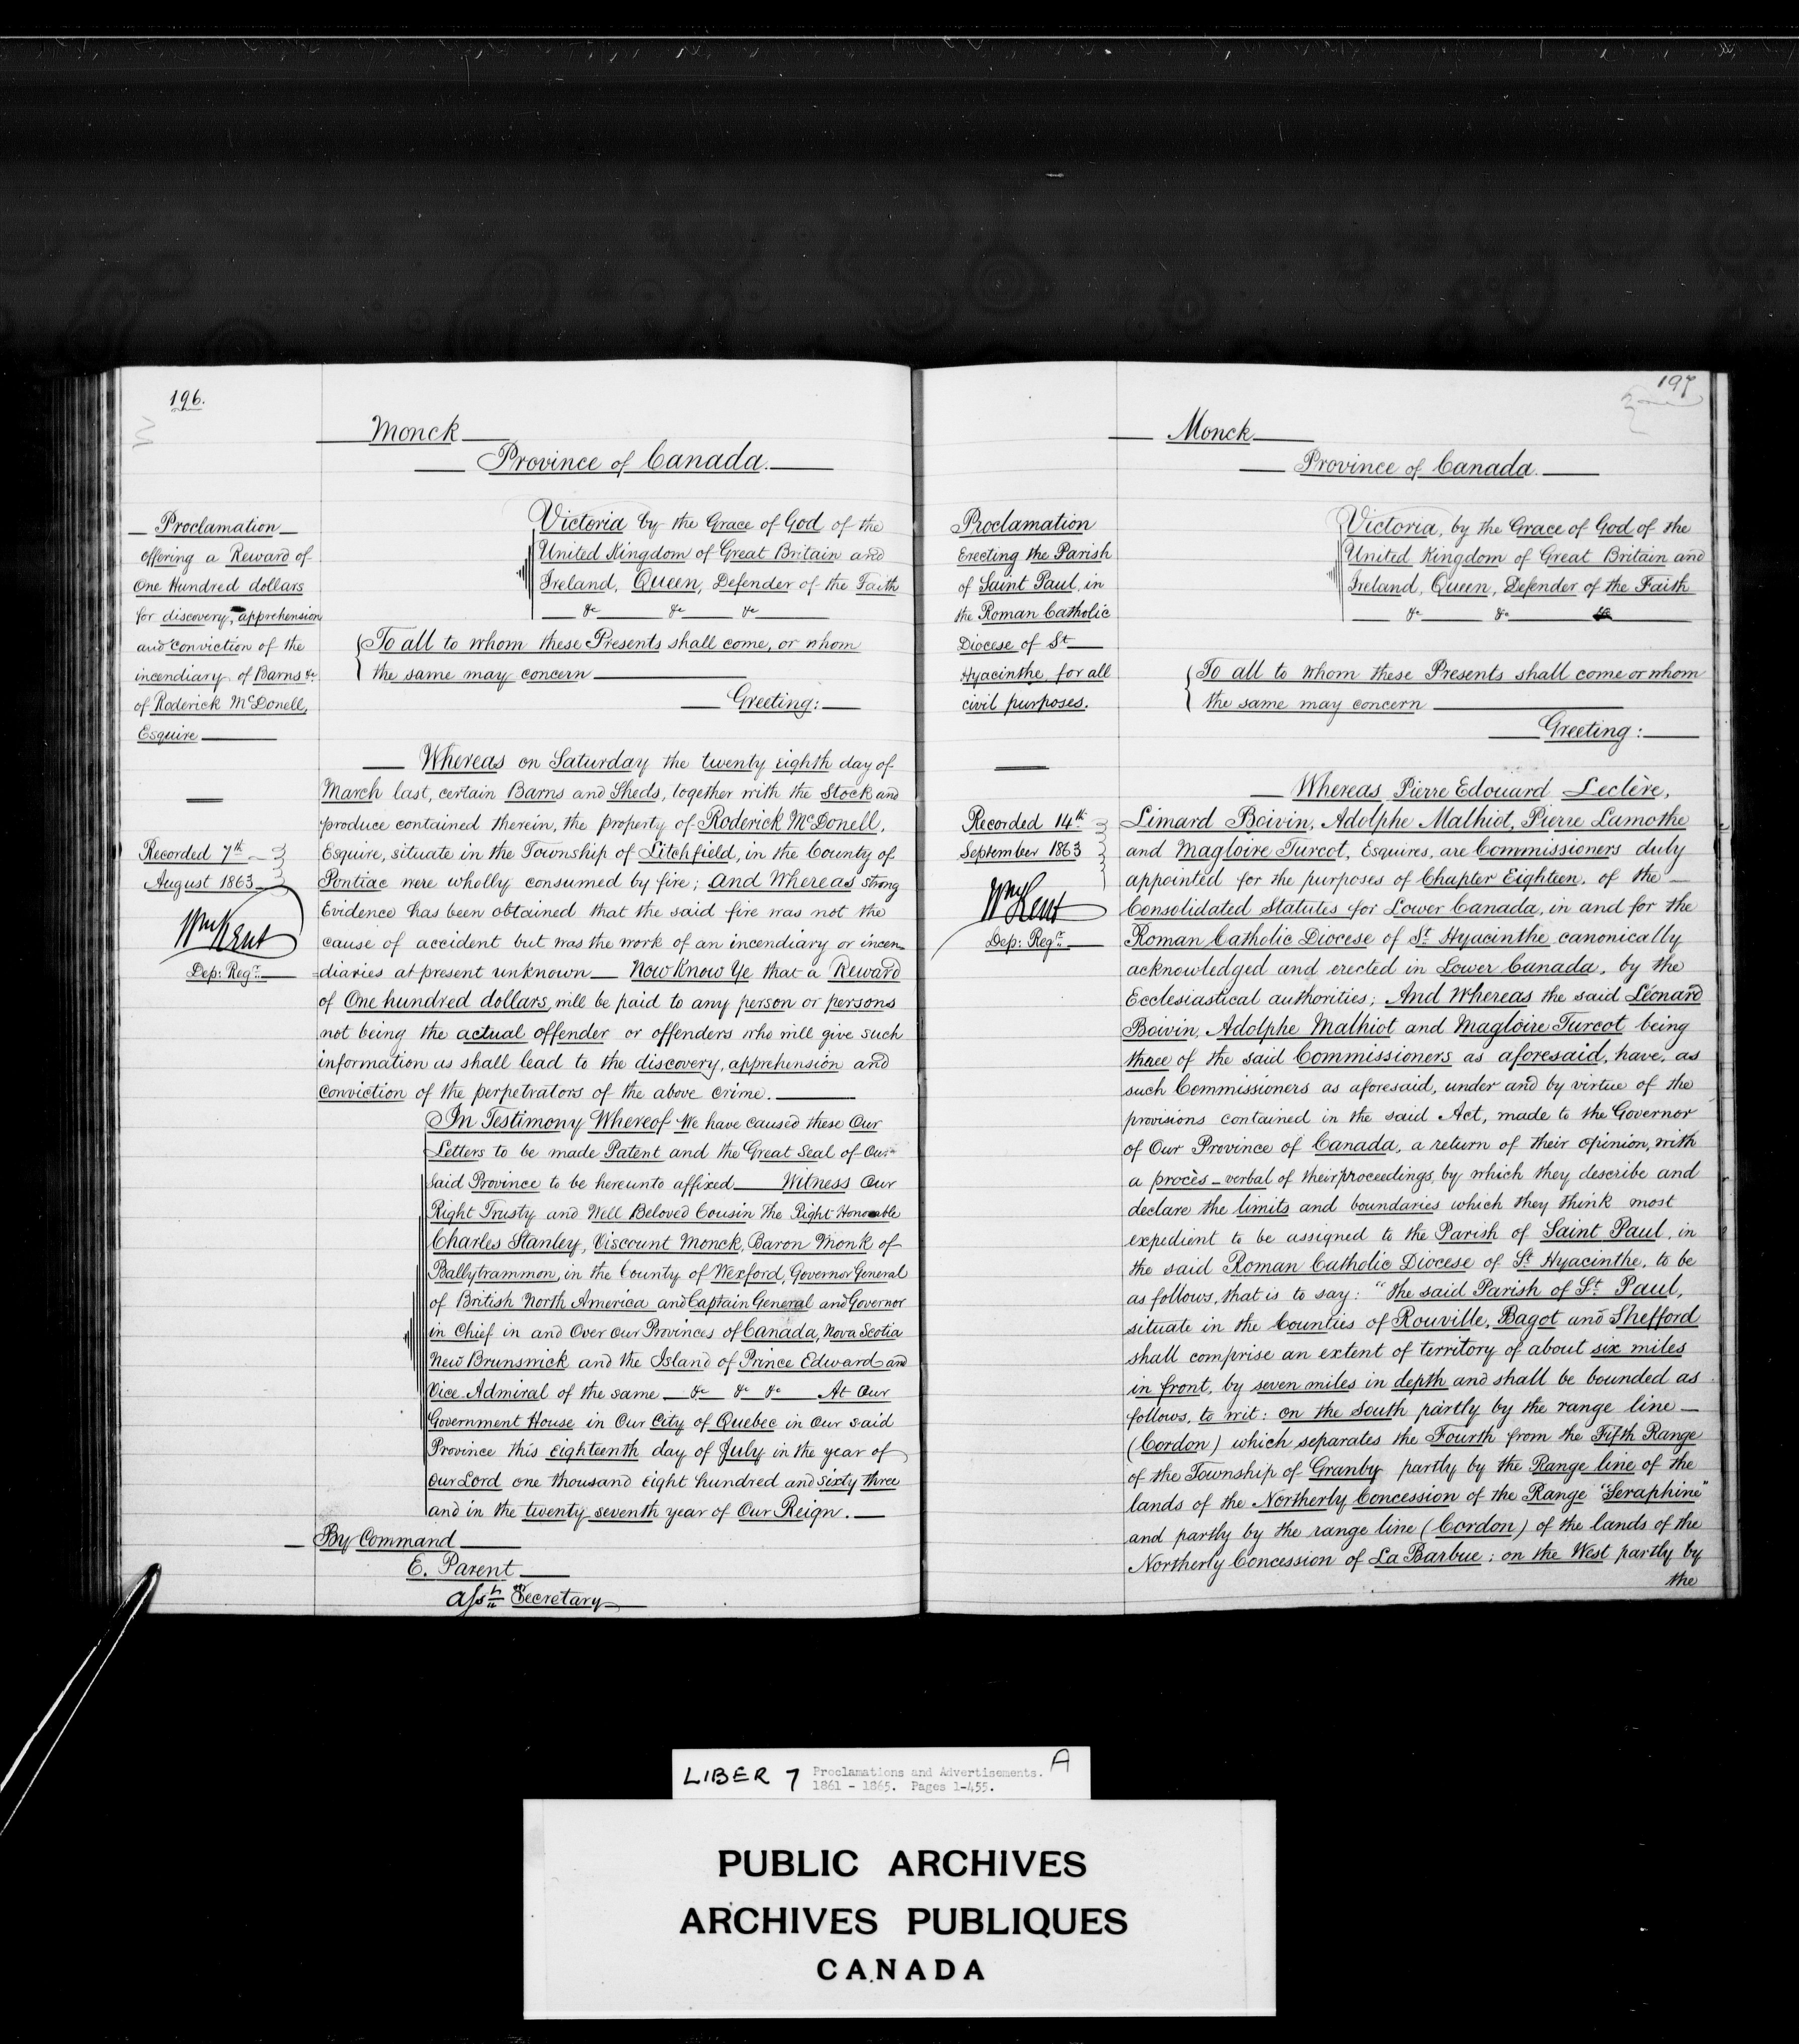 196.
Monck
Province of Canada.
Proclamation
offering a Reward of
One Hundred dollars
for discovery, apprehension
and conviction of the
incendiary of Barns &c
of Roderick McDonell,
Esquire
Recorded 7th
August 1863
Wm Kent
Dep: Regr.
Victoria by the Grace of God of the
United Kingdom of Great Britain and
Ireland, Queen, Defender of the Faith
&c &c &c
To all to whom these Presents shall come, or whom
the same may concern
Greeting:
Whereas on Saturday the twenty eighth day of
March last, certain Barns and Sheds, together with the Stock and
produce contained therein, the property of Roderick McDonell,
Esquire, situate in the Township of Litchfield, in the County of
Pontiac were wholly consumed by fire; and Whereas strong
Evidence has been obtained that the said fire was not the
cause of accident but was the work of an incendiary or incen-
-diaries at present unknown — Now Know Ye that a Reward
of One hundred dollars, will be paid to any person or persons
not being the actual offender or offenders who will give such
information as shall lead to the discovery, apprehension and
conviction of the perpetrators of the above crime.
In Testimony Whereof We have caused these Our
Letters to be made Patent and the Great Seal of Our
said Province to be hereunto affixed — Witness Our
Right Trusty and Well Beloved Cousin The Right Honorable
Charles Stanley, Viscount Monck, Baron Monk of
Ballytrammon, in the County of Wexford, Governor General
of British North America and Captain General and Governor
in Chief in and Over Our Provinces of Canada, Nova Scotia
New Brunswick and the Island of Prince Edward and
Vice Admiral of the same — &c &c &c — At Our
Government House in Our City of Quebec in Our said
Province this eighteenth day of July in the year of
Our Lord one thousand Eight hundred and sixty three
and in the twenty seventh year of Our Reign. —
By Command
E. Parent
Asst. Secretary
197
Monck
Province of Canada.
Proclamation
Erecting the Parish
of Saint Paul, in
the Roman Catholic
Diocese of St
Hyacinthe, for all
civil purposes.
Recorded 14th
September 1863
Wm Kent
Dep: Regr.
Victoria, by the Grace of God of the
United Kingdom of Great Britain and
Ireland, Queen, Defender of the Faith
&c &c &c
To all to whom these Presents shall come or whom
the same may concern
Greeting:
Whereas Pierre Edouard Leclère,
Limard Boivin, Adolphe Malhiot, Pierre Lamothe
and Magloire Turcot, Esquires, are Commissioners duly
appointed for the purposes of Chapter Eighteen, of the
Consolidated Statutes for Lower Canada, in and for the
Roman Catholic Diocese of St. Hyacinthe canonically
acknowledged and erected in Lower Canada, by the
Ecclesiastical authorities; And Whereas the said Léonard
Boivin, Adolphe Malhiot and Magloire Turcot being
three of the said Commissioners as aforesaid, have, as
such Commissioners as aforesaid, under and by virtue of the
provisions contained in the said Act, made to the Governor
of Our Province of Canada, a return of their opinion, with
a procès-verbal of their proceedings, by which they describe and
declare the limits and boundaries which they think most
expedient to be assigned to the Parish of Saint Paul, in
the said Roman Catholic Diocese of St. Hyacinthe, to be
as follows, that is to say: "The said Parish of St. Paul,
situate in the Counties of Rouville, Bagot and Shefford
shall comprise an extent of territory of about six miles
in front, by seven miles in depth and shall be bounded as
follows, to wit: on the South partly by the range line —
(Cordon) which separates the Fourth from the Fifth Range
of the Township of Granby partly by the Range line of the
lands of the Northerly Concession of the Range "Seraphine"
and partly by the range line (Cordon) of the lands of the
Northerly Concession of La Barbue; on the West partly by
the
LIBER 7 Proclamations and Advertisements. A
1861 - 1865. Pages 1-455.
PUBLIC ARCHIVES
ARCHIVES PUBLIQUES
CANADA